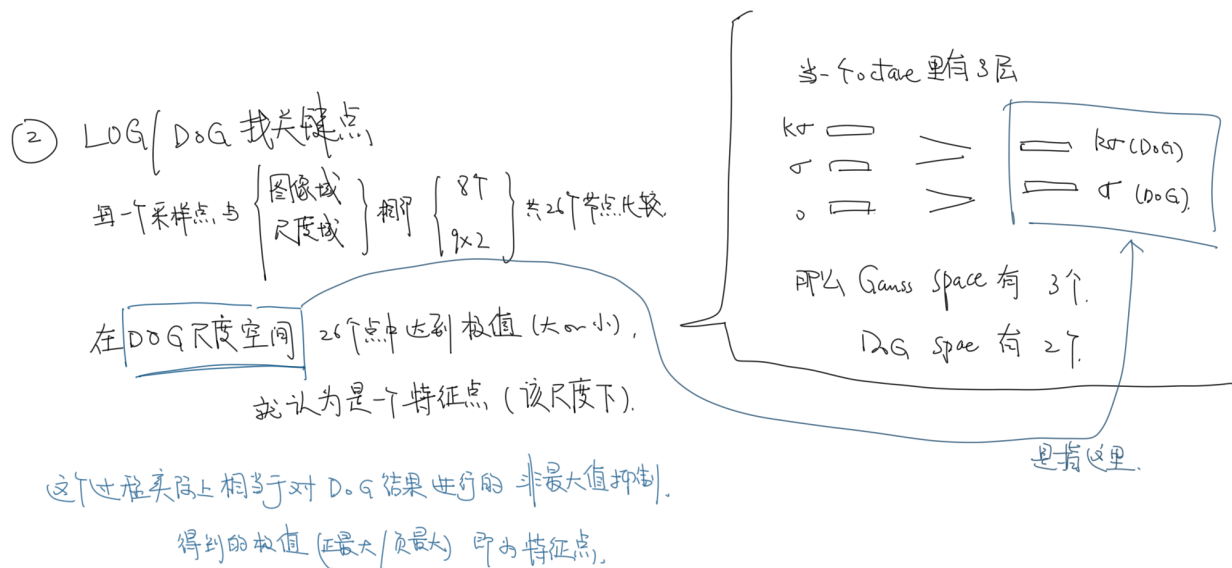 ② LOG/DoG 找关键点
每一个采样点与 { 图像域 尺度域 } 相邻 { 8个 9×2 } 共26个节点比较
在 DOG尺度空间 26个点中达到极值(大or小),
就认为是一个特征点(该尺度下).
这个过程实际上相当于对DoG结果进行的 非最大值抑制.
得到的极值(正最大/负最大) 即为特征点.
当一个octave里有3层
kσ
σ
0
kσ (DoG)
σ (DoG).
那么 Gauss space 有 3个.
DoG spae 有 2个.
是指这里.